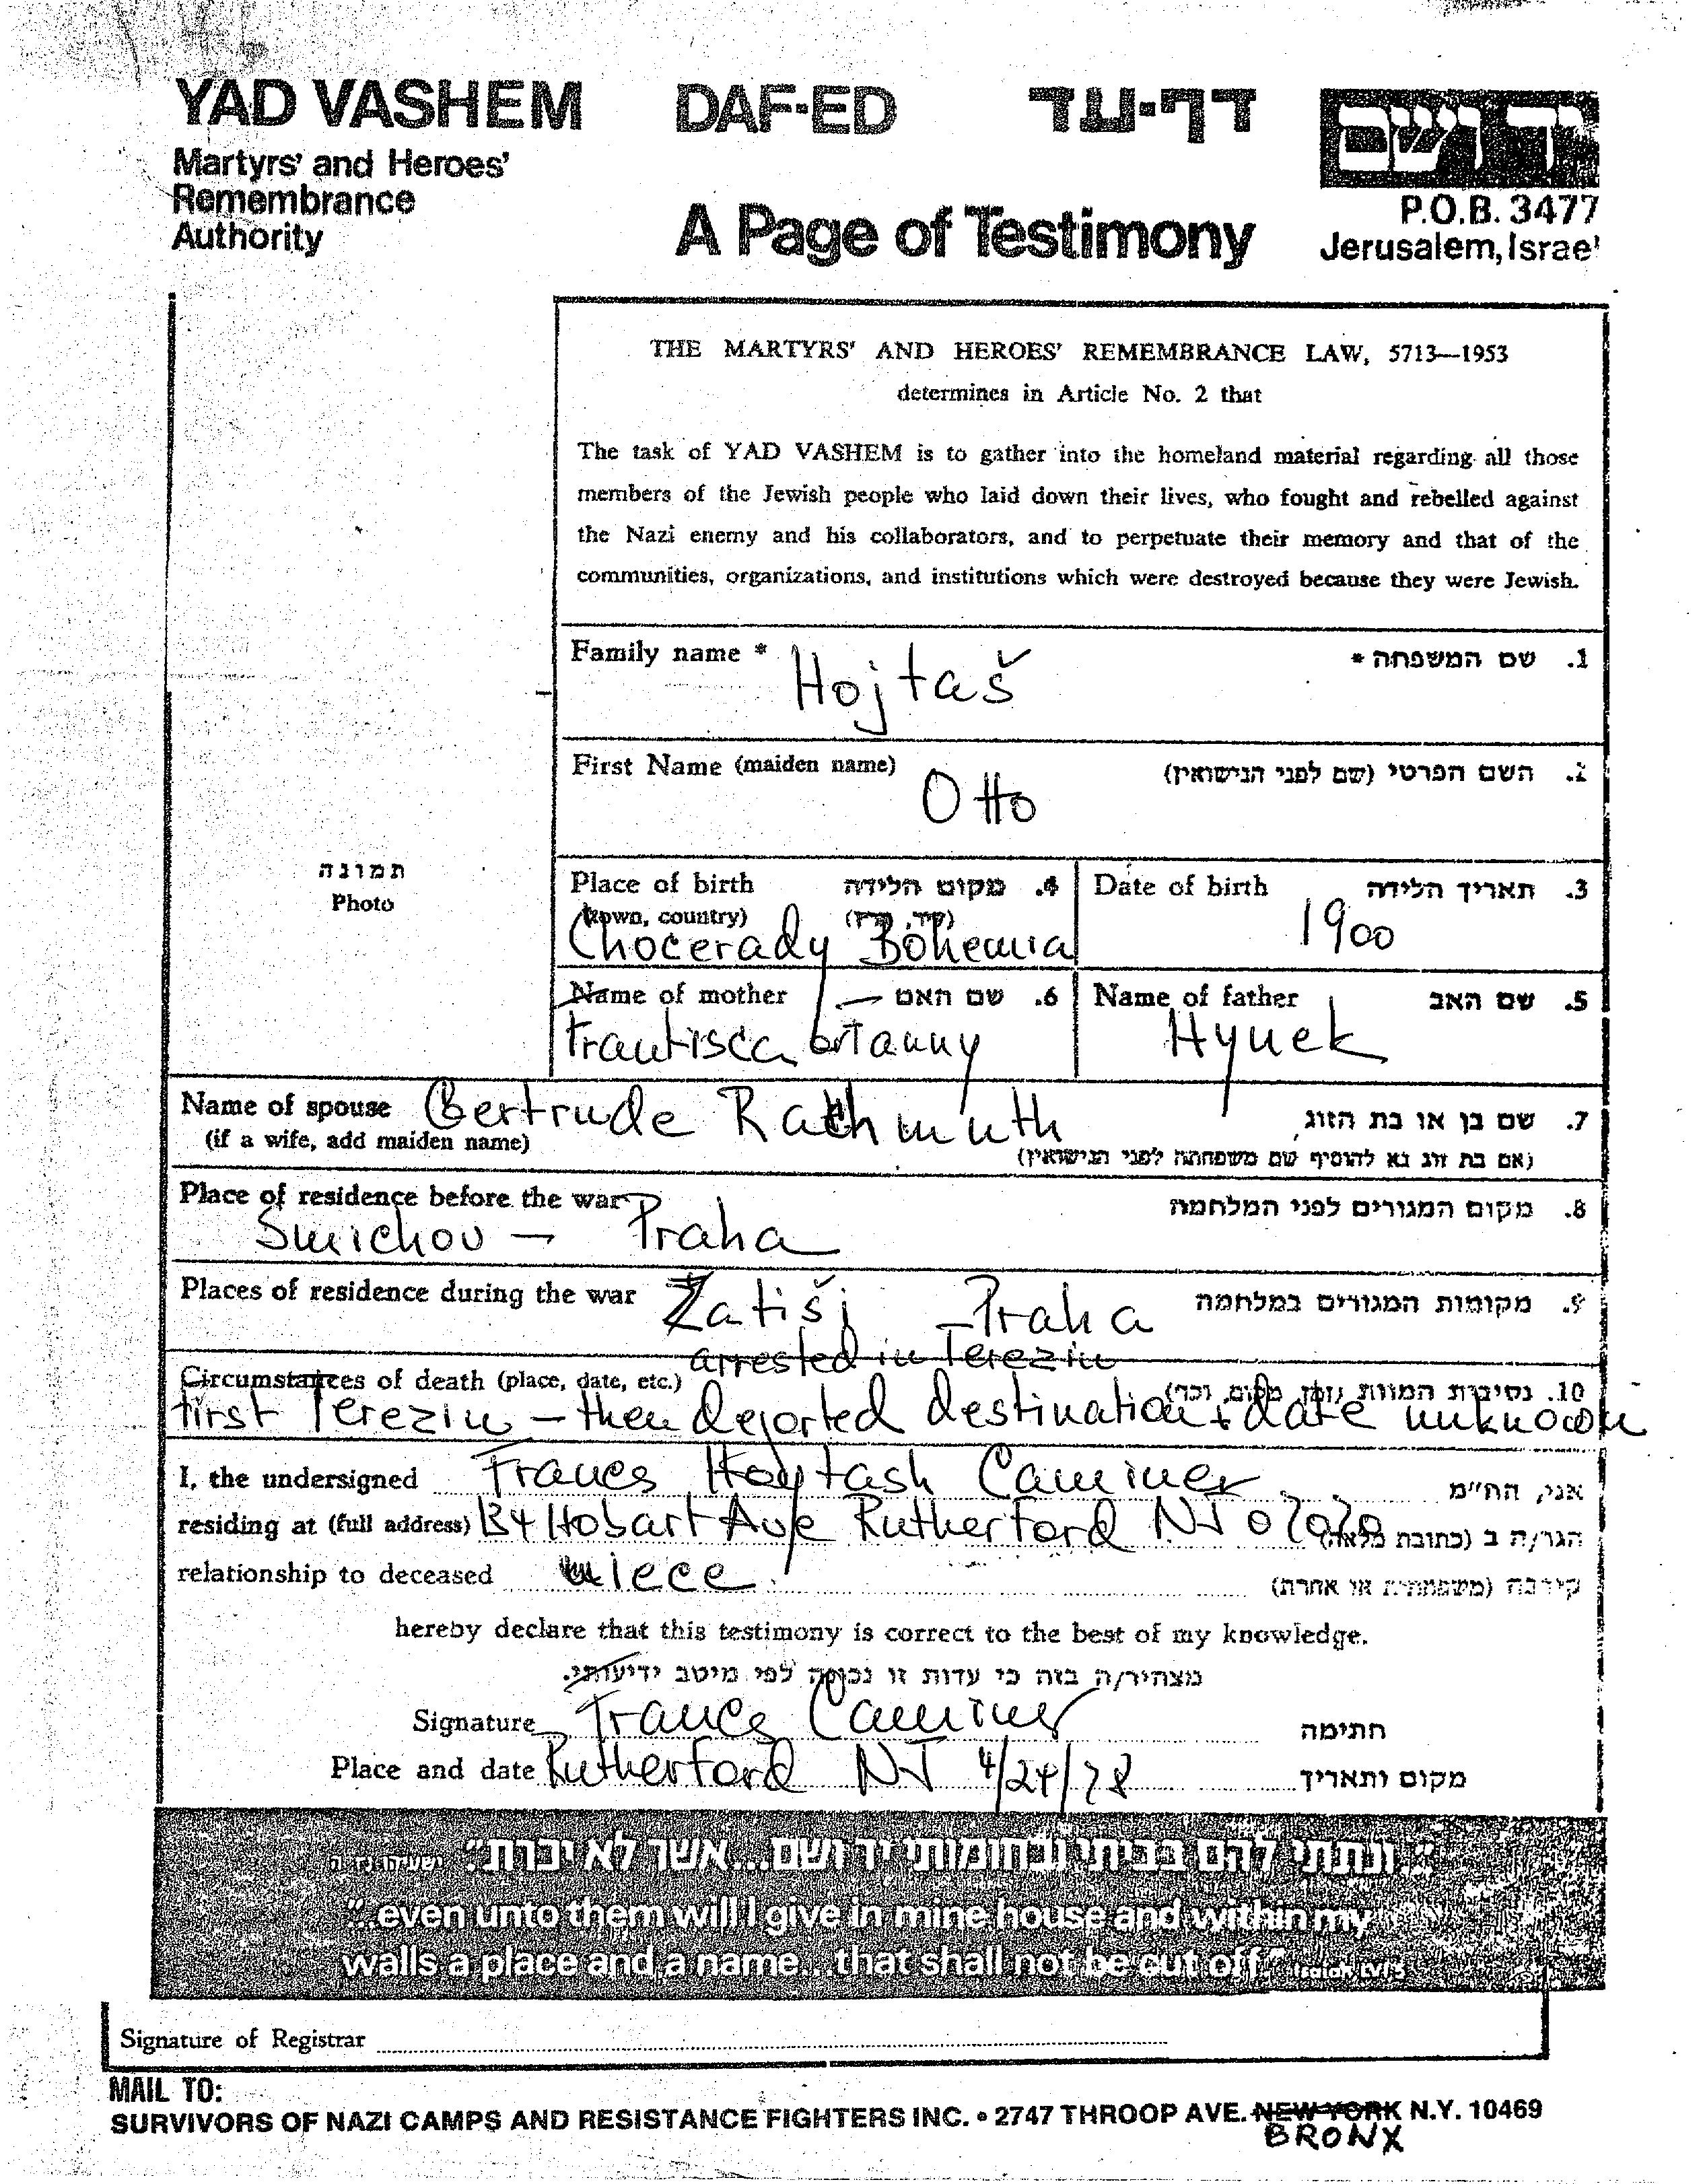 YAD VASHEM DAF-ED דף-עד יד ושם
Martyrs' and Heroes'
Remembrance
Authority
A Page of Testimony
P.O.B. 3477
Jerusalem, Israel
THE MARTYRS' AND HEROES' REMEMBRANCE LAW, 5713—1953
determines in Article No. 2 that
The task of YAD VASHEM is to gather into the homeland material regarding all those
members of the Jewish people who laid down their lives, who fought and rebelled against
the Nazi enemy and his collaborators, and to perpetuate their memory and that of the
communities, organizations, and institutions which were destroyed because they were Jewish.
Family name * Hojtaš 1. שם המשפחה *
First Name (maiden name) Otto 2. השם הפרטי (שם לפני הנישואין)
תמונה
Photo
Place of birth 4. מקום הלידה
(town, country) (עיר, ארץ)
Chocerady Bohemia
Date of birth 3. תאריך הלידה
1900
Name of mother 6. שם האם
Frantisca
Name of father 5. שם האב
Hynek
Name of spouse Gertrude Rathmuth 7. שם בן או בת הזוג
(if a wife, add maiden name) (אם בת זוג נא להוסיף שם משפחתה לפני הנישואין)
Place of residence before the war 8. מקום המגורים לפני המלחמה
Smichov – Praha
Places of residence during the war Zatiši – Praha 9. מקומות המגורים במלחמה
arrested in Terezin
Circumstances of death (place, date, etc.) 10. נסיבות המוות (זמן, מקום, וכו')
first Terezin – then deported destination + date unknown
I, the undersigned Frances Hoytash Caminer אני, הח"מ
residing at (full address) 134 Hobart Ave Rutherford NJ 07070 הגר/ה ב (כתובת מלאה)
relationship to deceased niece קירבה (משפחתית או אחרת)
hereby declare that this testimony is correct to the best of my knowledge.
מצהיר/ה בזה כי עדות זו נכונה לפי מיטב ידיעותי.
Signature Frances Caminer חתימה
Place and date Rutherford NJ 4/24/78 מקום ותאריך
"ונתתי להם בביתי ובחומותי יד ושם...אשר לא יכרת" ישעיהו נו ה
"..even unto them will I give in mine house and within my
walls a place and a name...that shall not be cut off" Isaiah LVI 5
Signature of Registrar
MAIL TO:
SURVIVORS OF NAZI CAMPS AND RESISTANCE FIGHTERS INC. • 2747 THROOP AVE. NEW YORK N.Y. 10469
BRONX